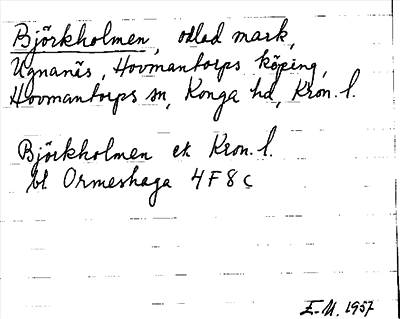 Björkholmen, odlad mark,
Ugnanäs, Hovmantorps köping,
Hovmantorps sn, Konga hd, Kron. l.
Björkholmen ek Kron. l.
bl Ormeshaga 4F8c
E-U. 1957